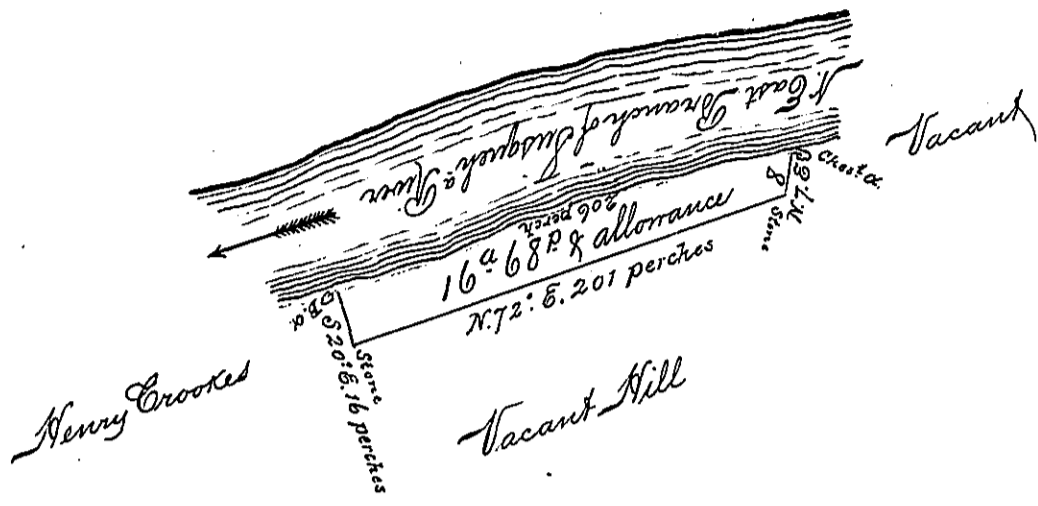 N. East Branch of Susqueh.a River
Vacant
Chest a.
Stone
206 perch
16 a 89 p & allowance
N. 72: E. 201 perches
Stone
S 20: E. 16 perches
Henry Crookes
Vacant Hill